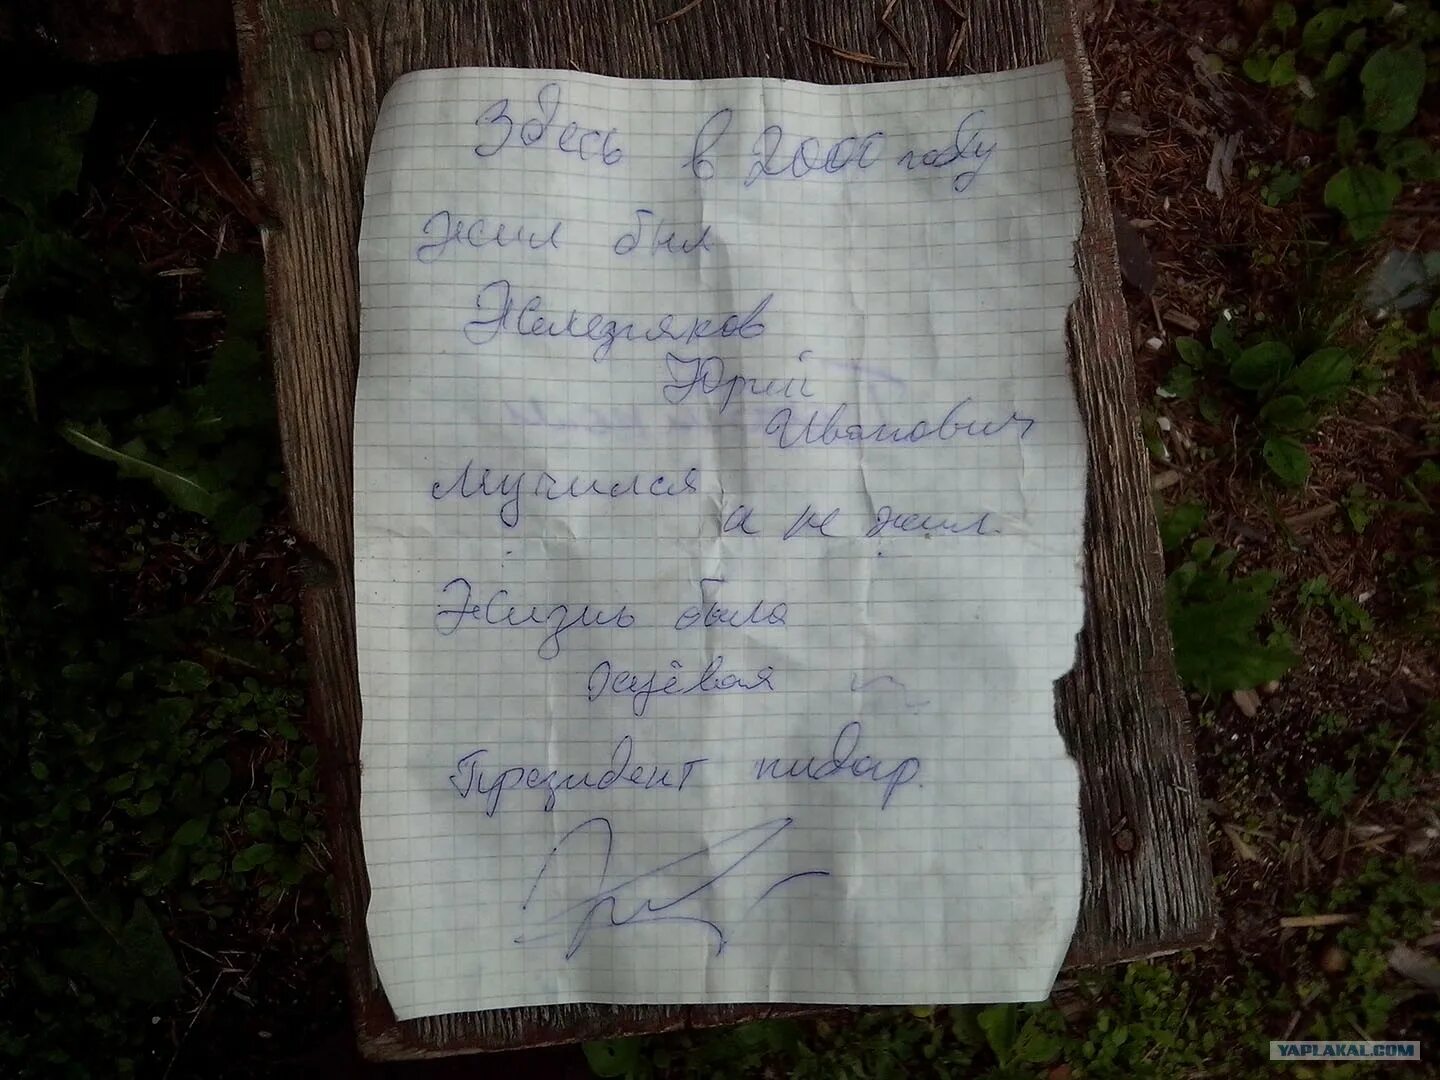 Здесь в 2000 году
жил был
Железняков
Юрий
Иванович
Мучился
а не жил.
Жизнь была
хуёвая
Президент пидар.
YAPLAKAL.COM